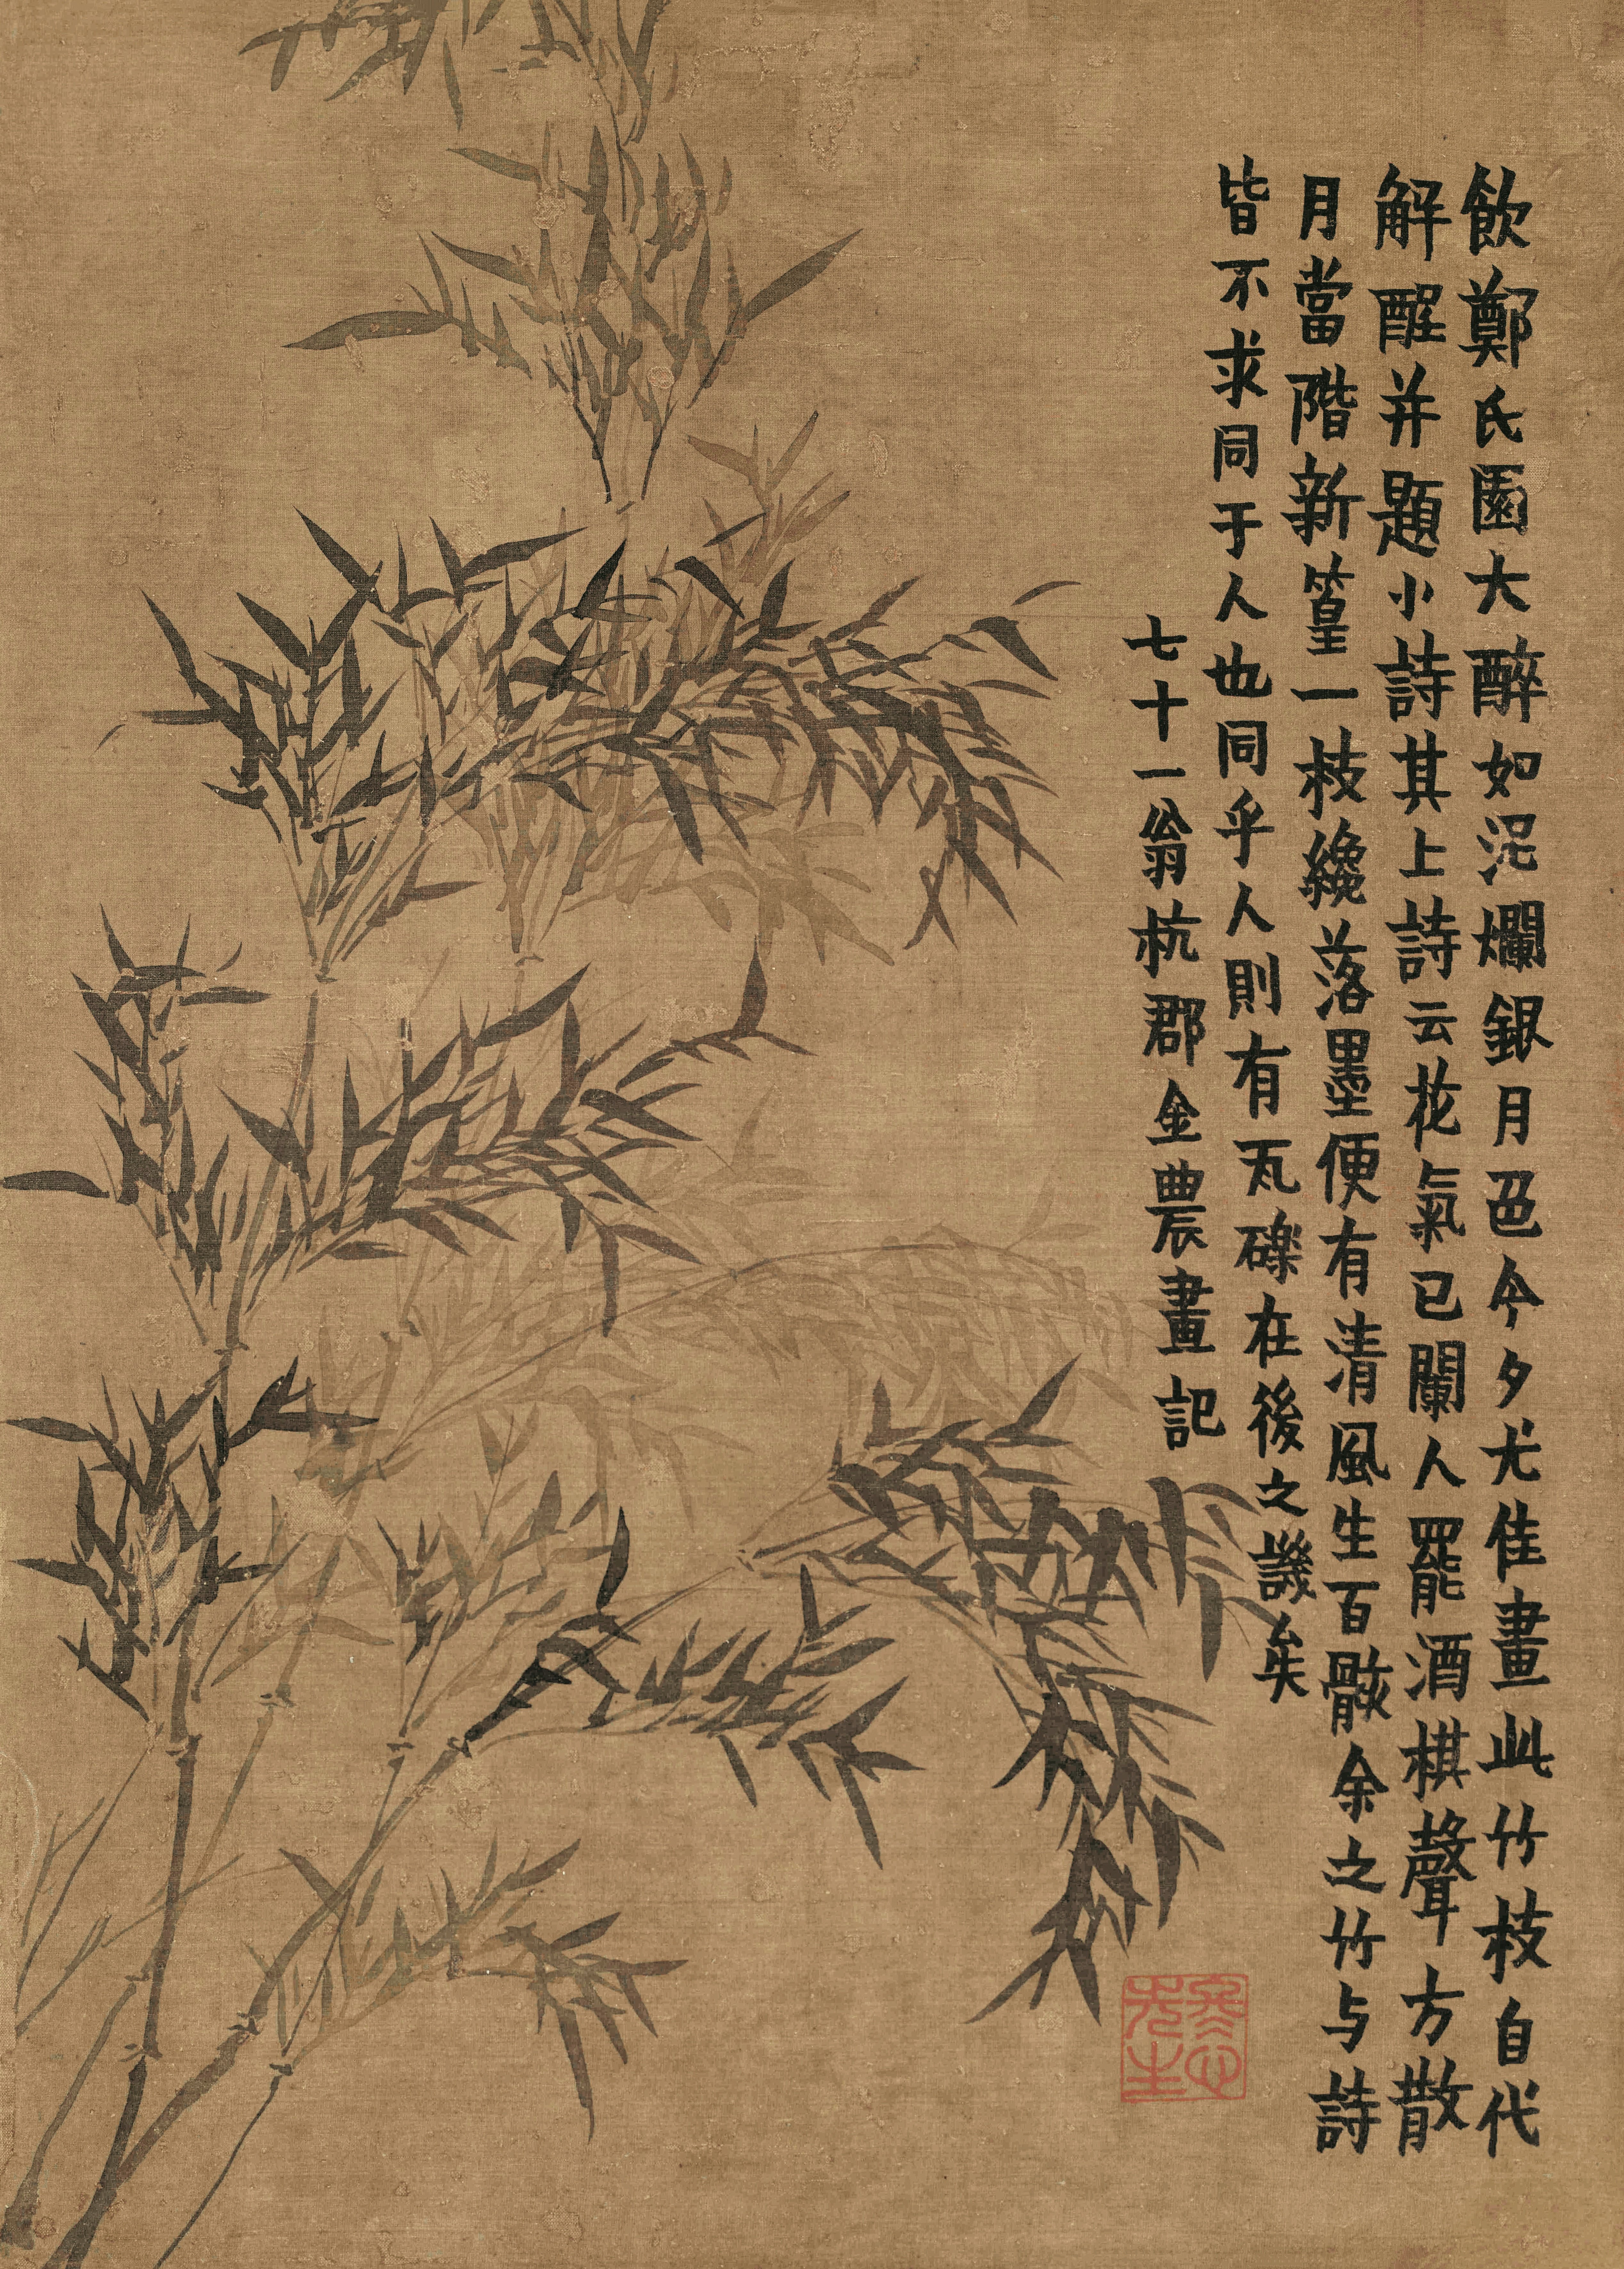 飲鄭氏園大醉如泥爛銀月色今夕尤佳畫此竹枝自代
解酲并題小詩其上詩云花氣已闌人罷酒棋聲方散
月當階新篁一枝纔落墨便有清風生百骸余之竹与詩
皆不求同于人也同乎人則有瓦礫在後之譏矣
七十一翁杭郡金農畫記
先生